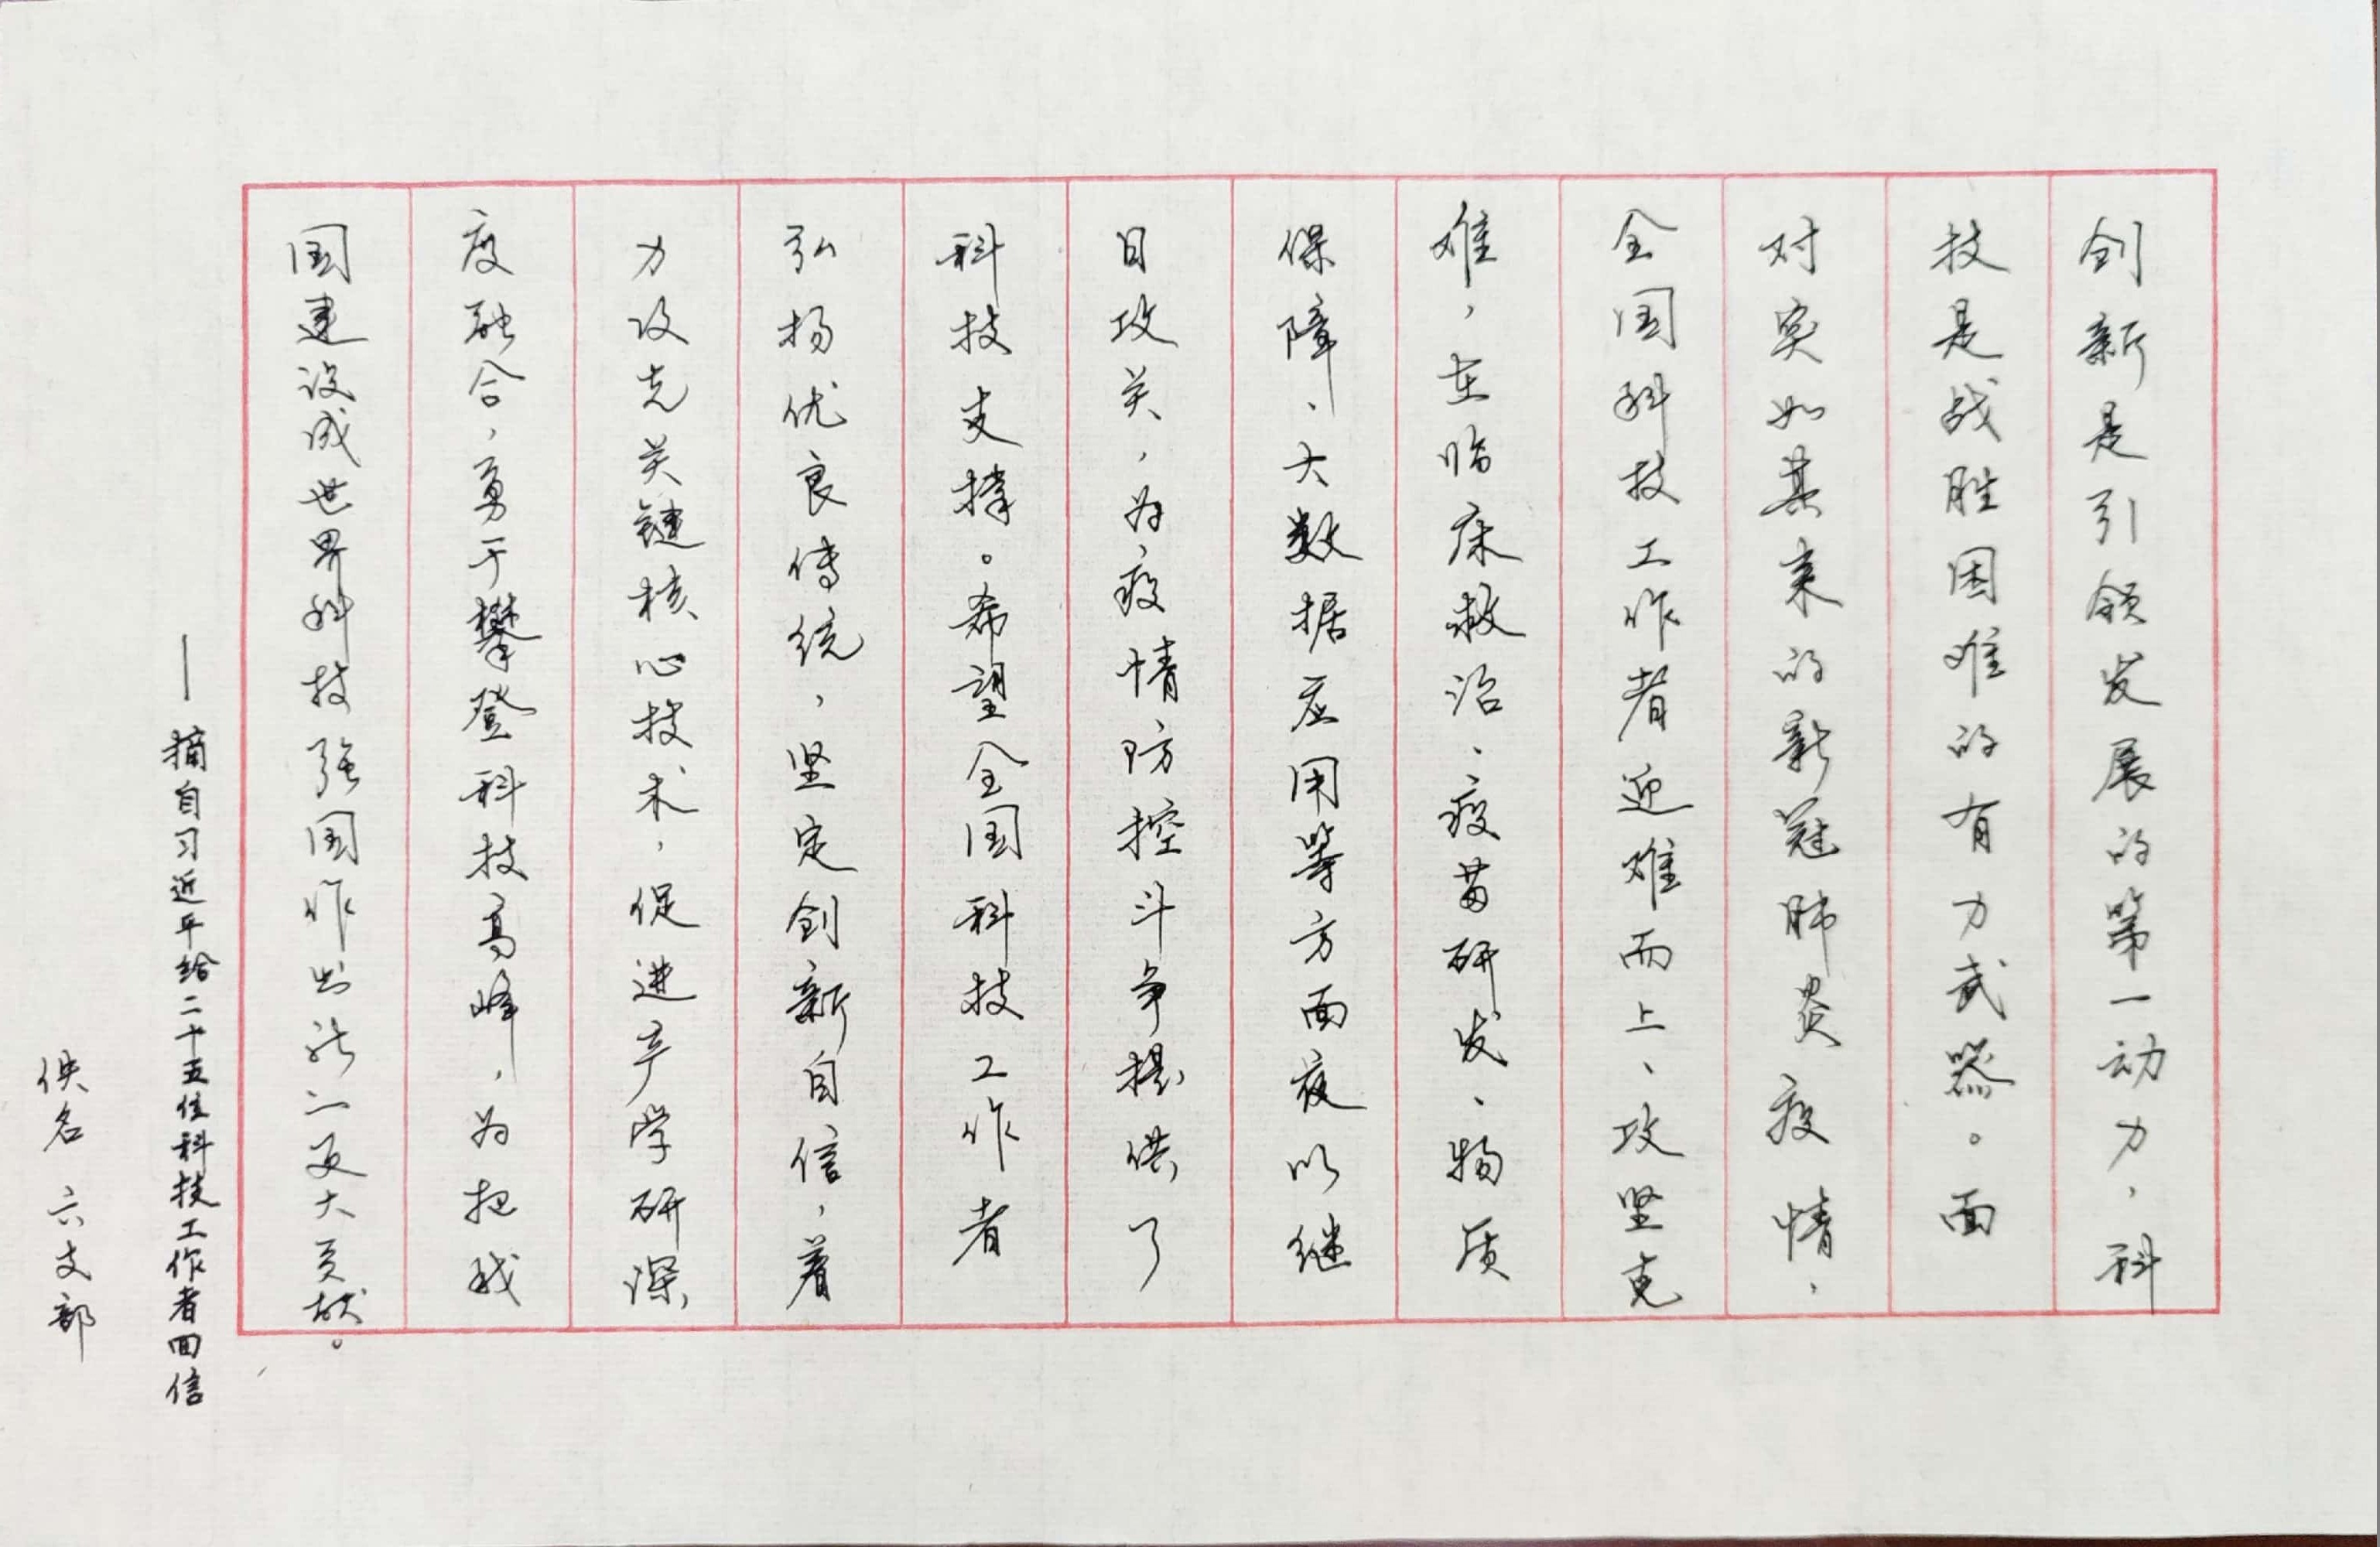 创新是引领发展的第一动力，科
技是战胜困难的有力武器。面
对突如其来的新冠肺炎疫情，
全国科技工作者迎难而上、攻坚克
难，在临床救治、疫苗研发、物质
保障、大数据应用等方面夜以继
日攻关，为疫情防控斗争提供了
科技支撑。希望全国科技工作者
弘扬优良传统，坚定创新自信，着
力攻克关键核心技术，促进产学研深
度融合，勇于攀登科技高峰，为把我
国建设成世界科技强国作出新的更大贡献。
——摘自习近平给二十五位科技工作者回信
佚名 六支部